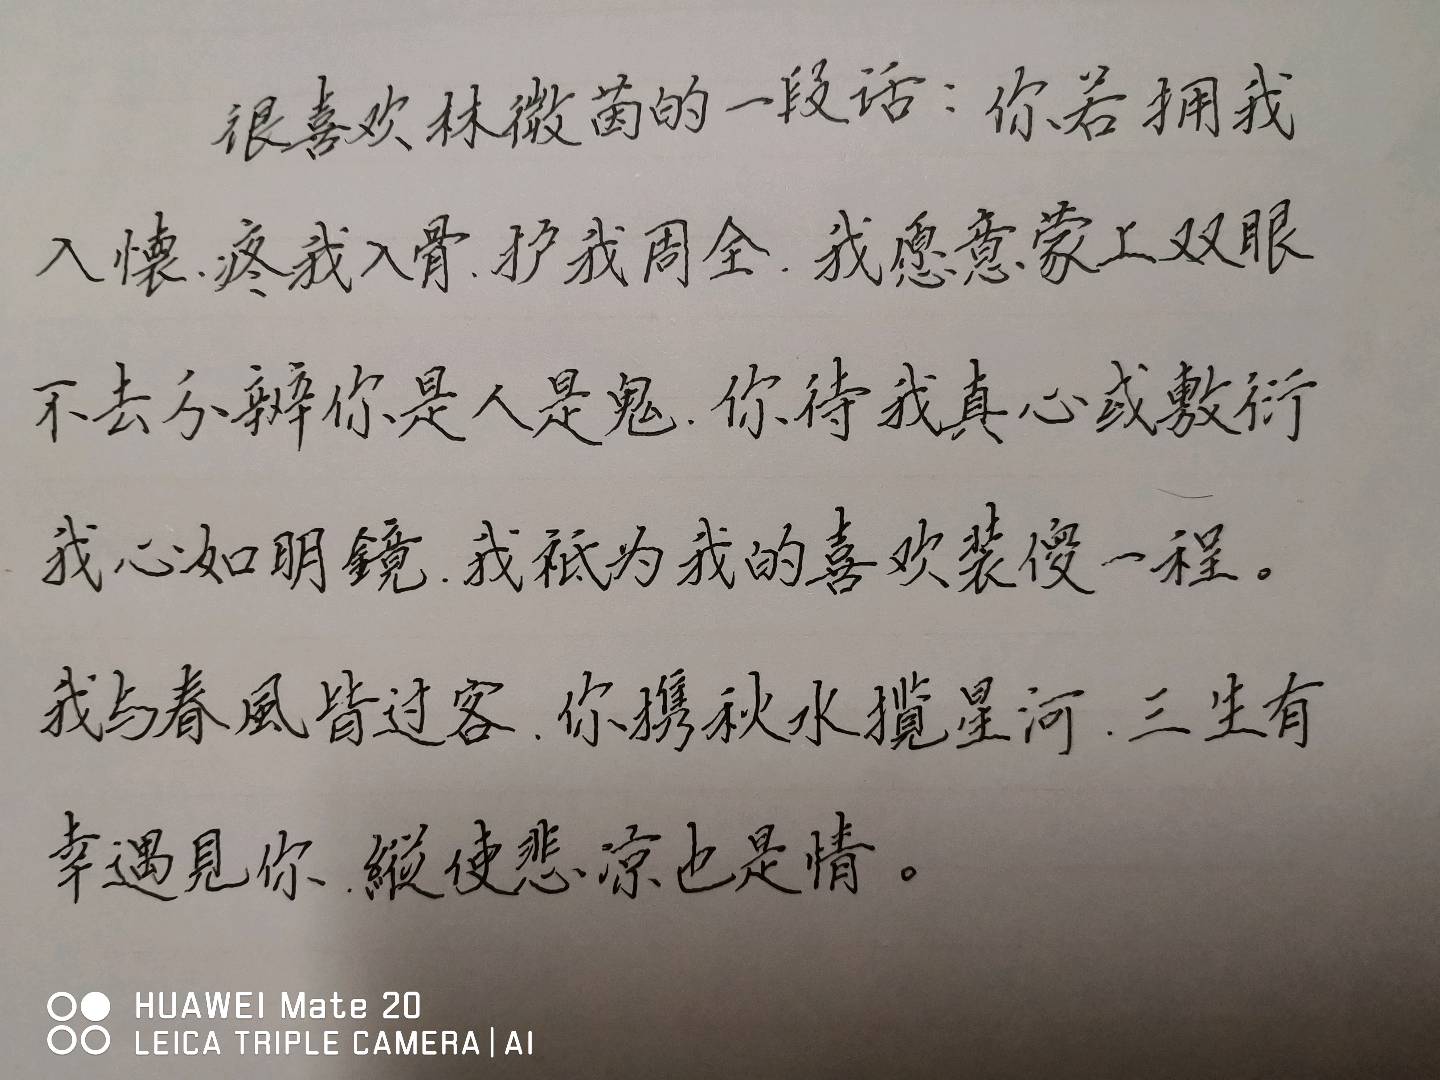 很喜欢林微茵的一段话：你若拥我
入懷.疼我入骨.护我周全.我愿意蒙上双眼
不去分辨你是人是鬼.你待我真心或敷衍
我心如明鏡.我祗为我的喜欢装傻一程。
我与春風皆过客.你携秋水揽星河.三生有
幸遇見你.縦使悲凉也是情。
HUAWEI Mate 20
LEICA TRIPLE CAMERA | AI